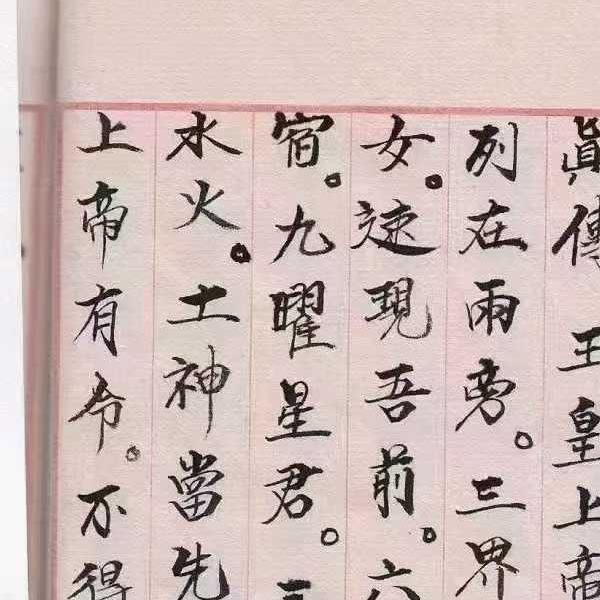 眞傳王皇上帝
列在雨旁。三界
女。速現吾前。六
宿。九曜星君。三
水火。土神當先
上帝有令。不得